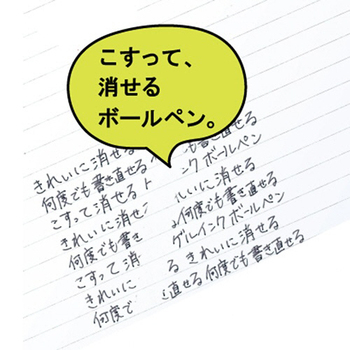 こすって、
消せる
ボールペン。
きれいに消せる
も書き直せる
何度でも書き直せる
ンク ボールペン
こすって消せる
れいに消せる
きれいに消せ
何度でも書き直せる
何度でも書き
ゲルインクボールペン
こすって消
る きれいに消せる
きれいに
直せる何度でも書き直せる
何度で